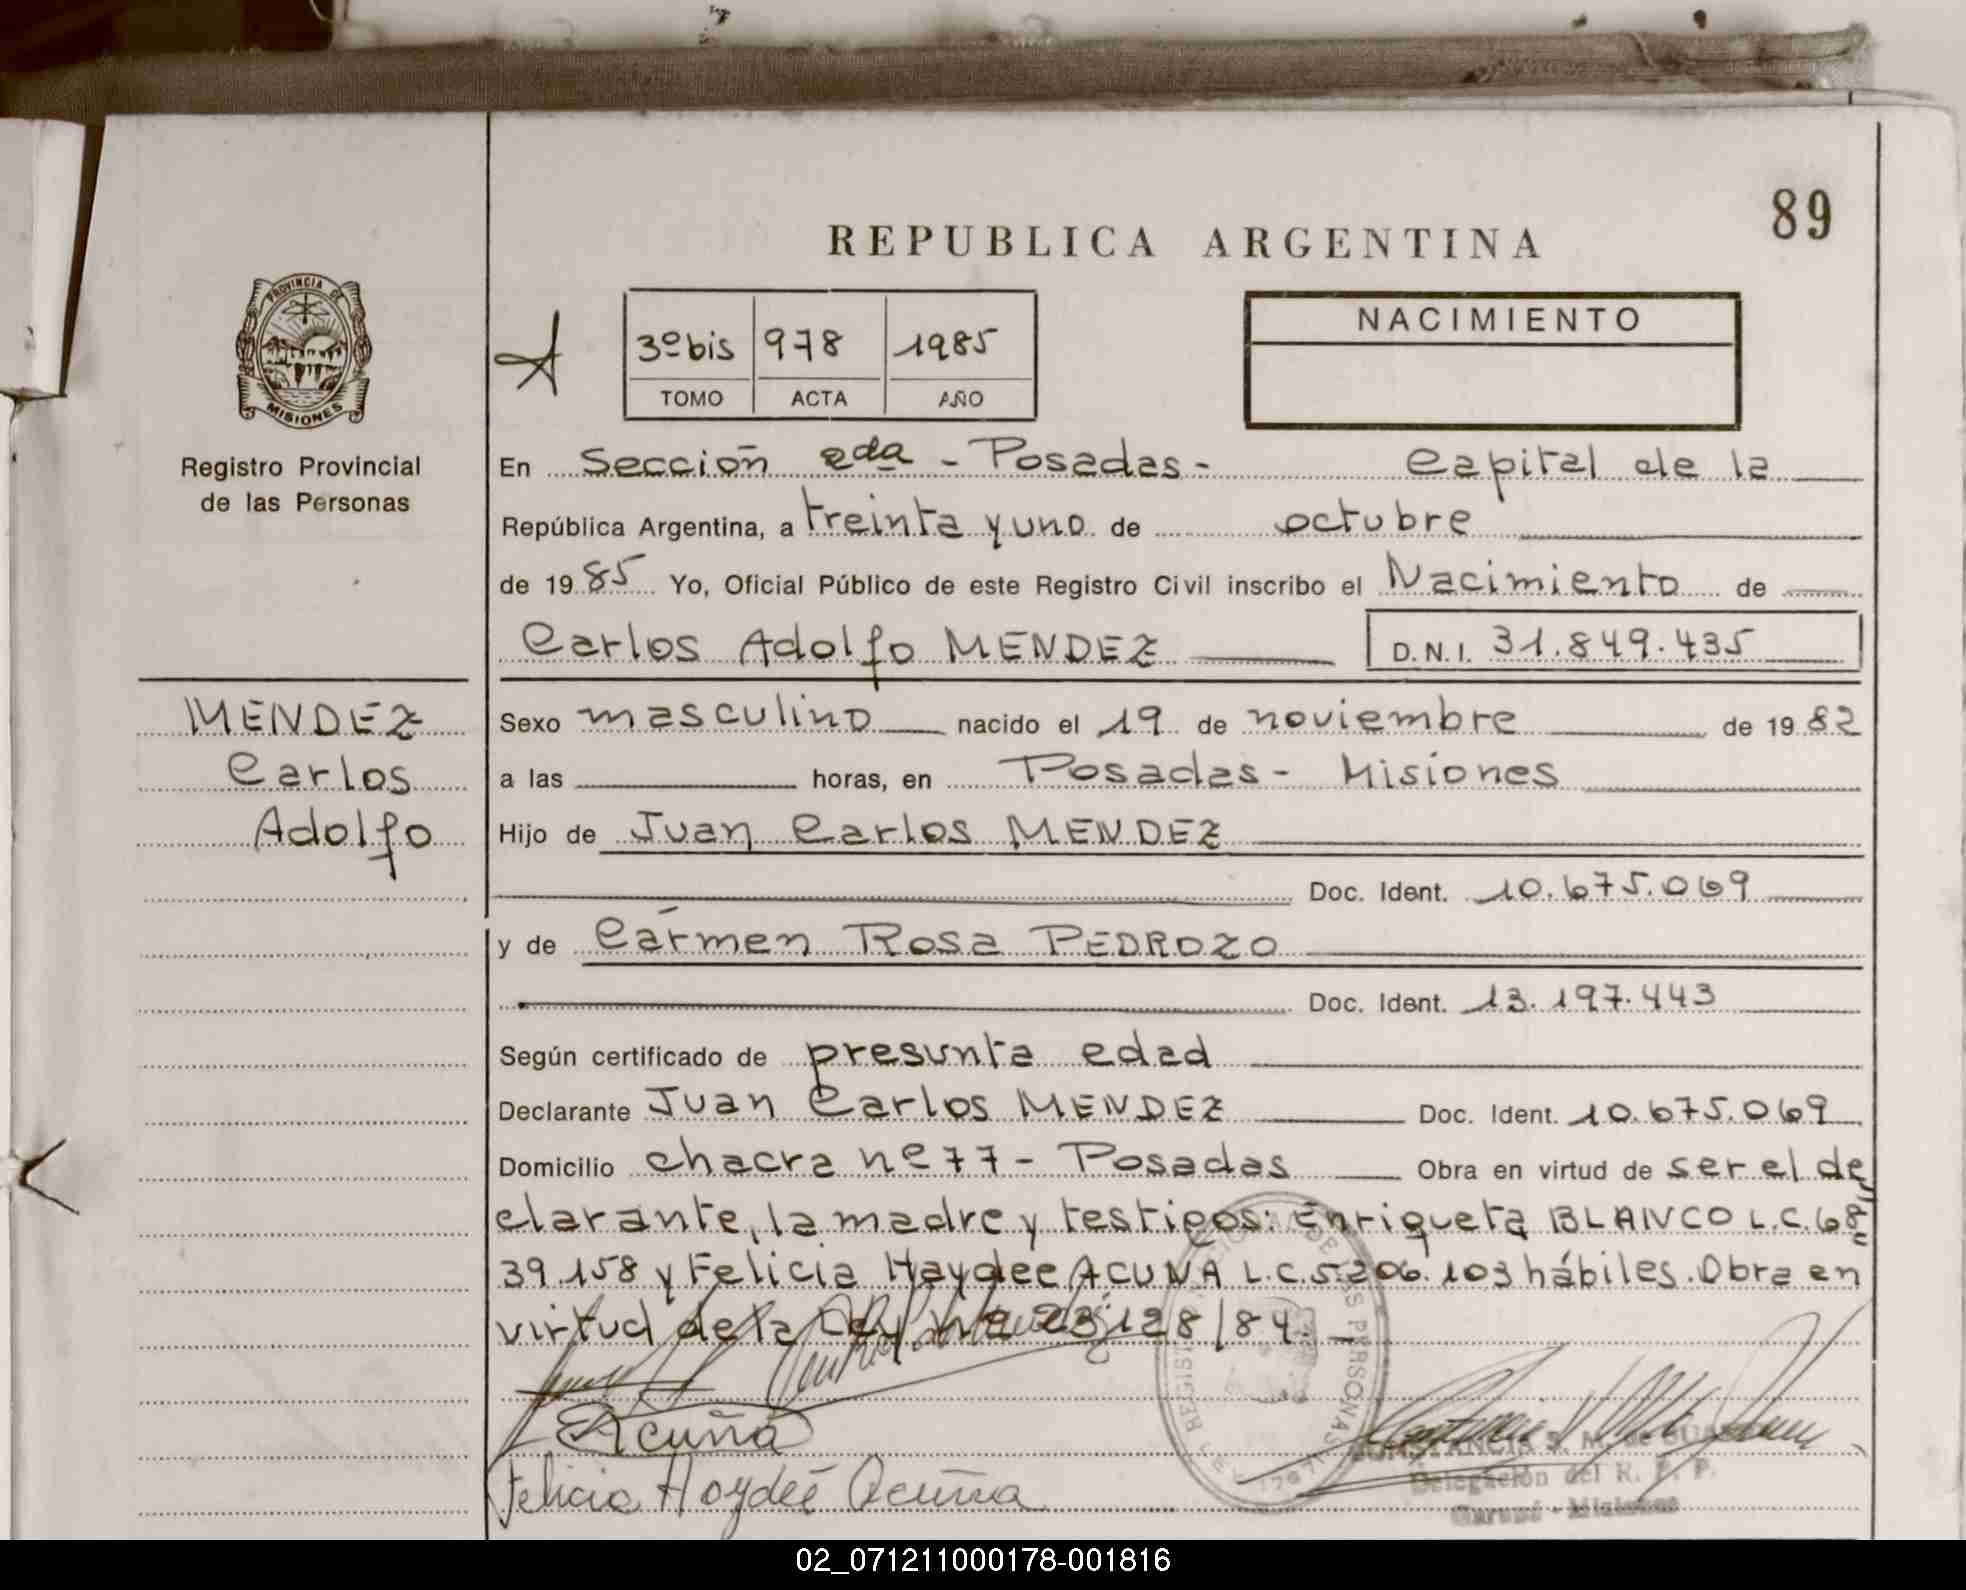 89
REPUBLICA ARGENTINA
PROVINCIA DE
MISIONES
Registro Provincial
de las Personas
A
3º bis 978 1985
TOMO ACTA AÑO
NACIMIENTO
En Sección 2da - Posadas - Capital de la
República Argentina, a treinta y uno de octubre
de 1985 Yo, Oficial Público de este Registro Civil inscribo el Nacimiento de
Carlos Adolfo MENDEZ D.N.I. 31.849.435
MENDEZ
Carlos
Adolfo
Sexo masculino nacido el 19 de noviembre de 1982
a las horas, en Posadas - Misiones
Hijo de Juan Carlos MENDEZ
Doc. Ident. 10.675.069
y de Cármen Rosa PEDROZO
Doc. Ident. 13.197.443
Según certificado de presunta edad
Declarante Juan Carlos MENDEZ Doc. Ident. 10.675.069
Domicilio chacra nº 77 - Posadas Obra en virtud de ser el de"
clarante, la madre y testigos: Enriqueta BLANCO L.C. 68"
39.158 y Felicia Haydee ACUÑA L.C. 5.206.103 hábiles. Obra en
virtud de la Ley nº 23.128/84. -
Acuña
Felicia Haydeé Acuña
S. M. de
Delegación del R. P. P.
Garupá - Misiones
02_071211000178-001816